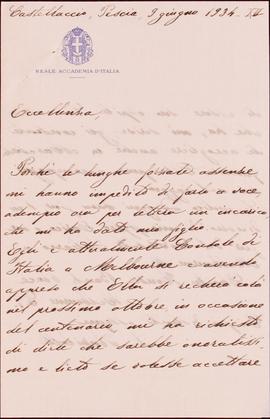 Castellaccio, Pescia, 9 giugno 1934. XII
REALE ACCADEMIA D'ITALIA
Eccellenza,
Poichè le lunghe forzate assenze
mi hanno impedito di farlo a voce,
adempio ora per lettera un incarico
che mi ha dato mio figlio
Egli è attualmente Console di
Italia a Melbourne e avendo
appreso che Ella si recherà colà
nel prossimo ottobre in occasione
del centenario mi ha richiesto
di dirle che sarebbe onoratissi,
mo e lieto se volesse accettare